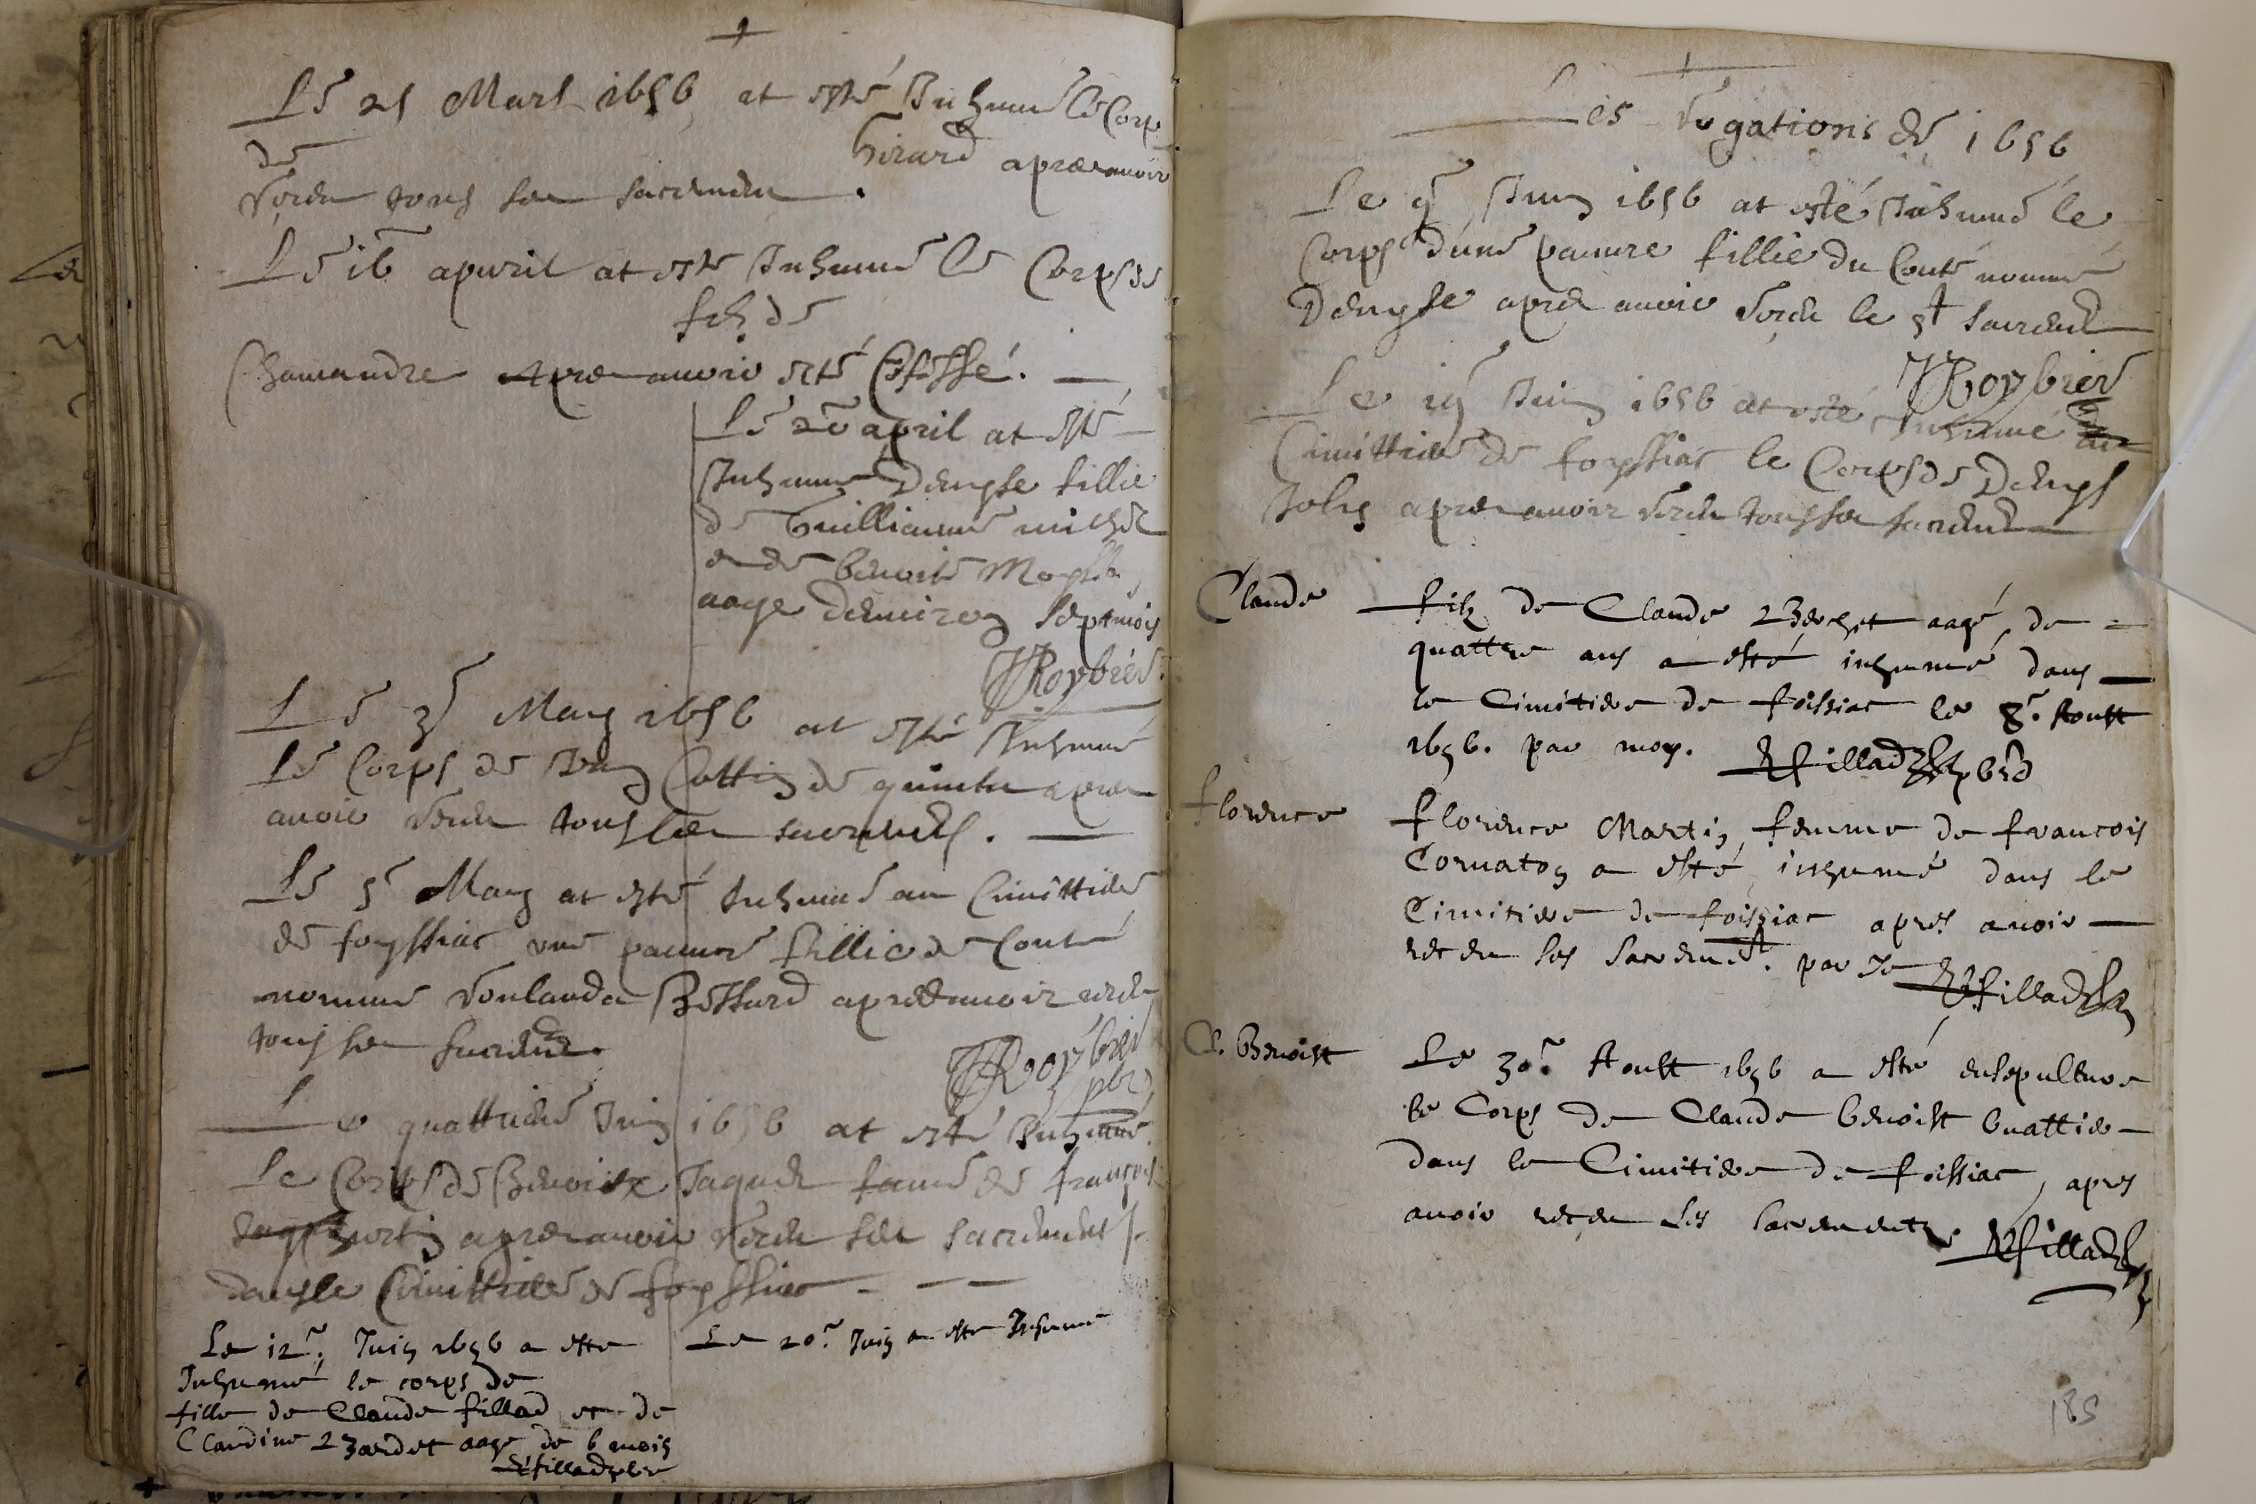 Le 25 Mars 1656 at esté Inhumé le Corp
de Girard apres avoir
receu tous ses sacremens .
Le 16 apvril at esté Inhumé le Corps de
filz de
Chamandre apres avoir esté Cofessé. —
Le apvril at esté
Inhumé Denyse fillie
de Guilliaume michel
et de benoite
aage denviron sept mois
JRoybier
Le 3 May 1656 at esté Inhumé
Le Corps de Cottin de apres
avoir receu tous ses sacremens. —
Le 5 May at esté Inhumé au Cimittiere
de foyssiac une pauvre fillie de Conté
nommé apres avoir receu
tous ses sacremens
JRoybier
pbr
Le quattrieme Juin 1656 at esté Inhumé
Le Corps de Benoite Jaquet fame de françois
apres avoir receu ses sacrements
dans le Cimittiere de foyssiac — —
Le 12e. Juin 1656 a este
Inhumé le corps de
fille de Claude fillad et de
Claudine aage de 6 mois
fillad pbr
Le 20e. Juin a este Inhumé
Les rogations de 1656
Le 9 Juin 1656 at esté Inhumé le
Corps d'une pauvre fillie du Conté nommé
Denyse apres avoir receu le st sacrement
JRoybier
Le 19 Juin 1656 at esté Inhumé au
Cimittiere de foyssiac le Corps de Denys
Joly apres avoir receu tous ses sacremens
Claude
filz de Claude aagé de
quattre ans a esté inhumé dans
le Cimitiere de foissiac le 8e. Aoust
1656. par moy. fillad
florence
florence Martin femme de francois
Cornaton a esté inhumé dans le
Cimitiere de foissiac apres avoir
receu ses sacremts. par Je fillad
C. Benoist
Le 30e. Aoust 1656 a esté ensepulture
le Corps de Claude benoist
dans le Cimitiere de foissiac, apres
avoir reçeu les sacrements. fillad
185